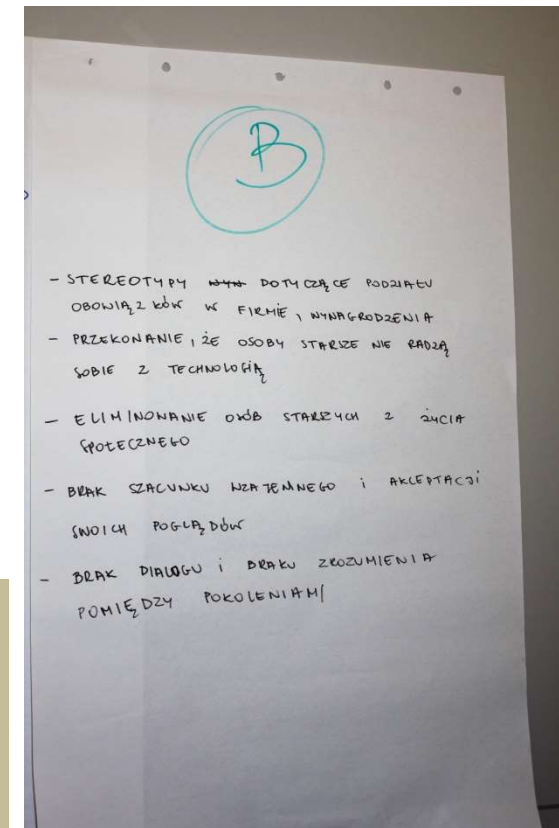 B
- STEREOTYPY DOTYCZĄCE PODZIAŁU
OBOWIĄZKÓW W FIRMIE, WYNAGRODZENIA
- PRZEKONANIE, ŻE OSOBY STARSZE NIE RADZĄ
SOBIE Z TECHNOLOGIĄ
- ELIMINOWANIE OSÓB STARSZYCH Z ŻYCIA
SPOŁECZNEGO
- BRAK SZACUNKU WZAJEMNEGO i AKCEPTACJI
SWOICH POGLĄDÓW
- BRAK DIALOGU i BRAKU ZROZUMIENIA
POMIĘDZY POKOLENIAMI